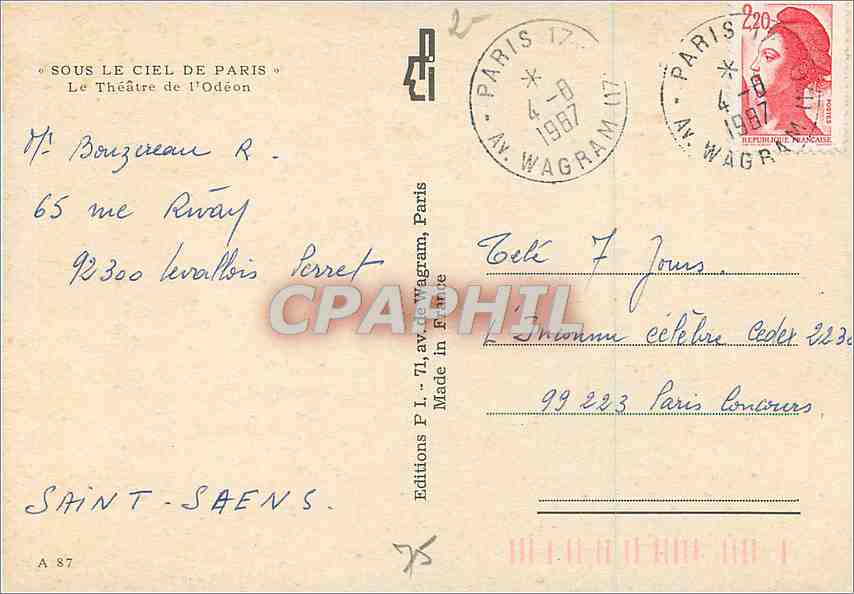 « SOUS LE CIEL DE PARIS »
Le Théâtre de l'Odéon
Mr Bouzereau R.
65 rue Rivay
92300 Levallois Perret
SAINT-SAENS.
A 87
Editions P I. - 71, av. de Wagram, Paris
Made in France
2-
75
PARIS 17
* 4-8
1987
AV. WAGRAM (17
PARIS 17
* 4-8
1987
AV. WAGRAM (17
2,20
POSTES
REPUBLIQUE FRANÇAISE
Télé 7 Jours.
L'Inconnu célèbre Cedex 2230
99 223 Paris Concours
CPAPHIL